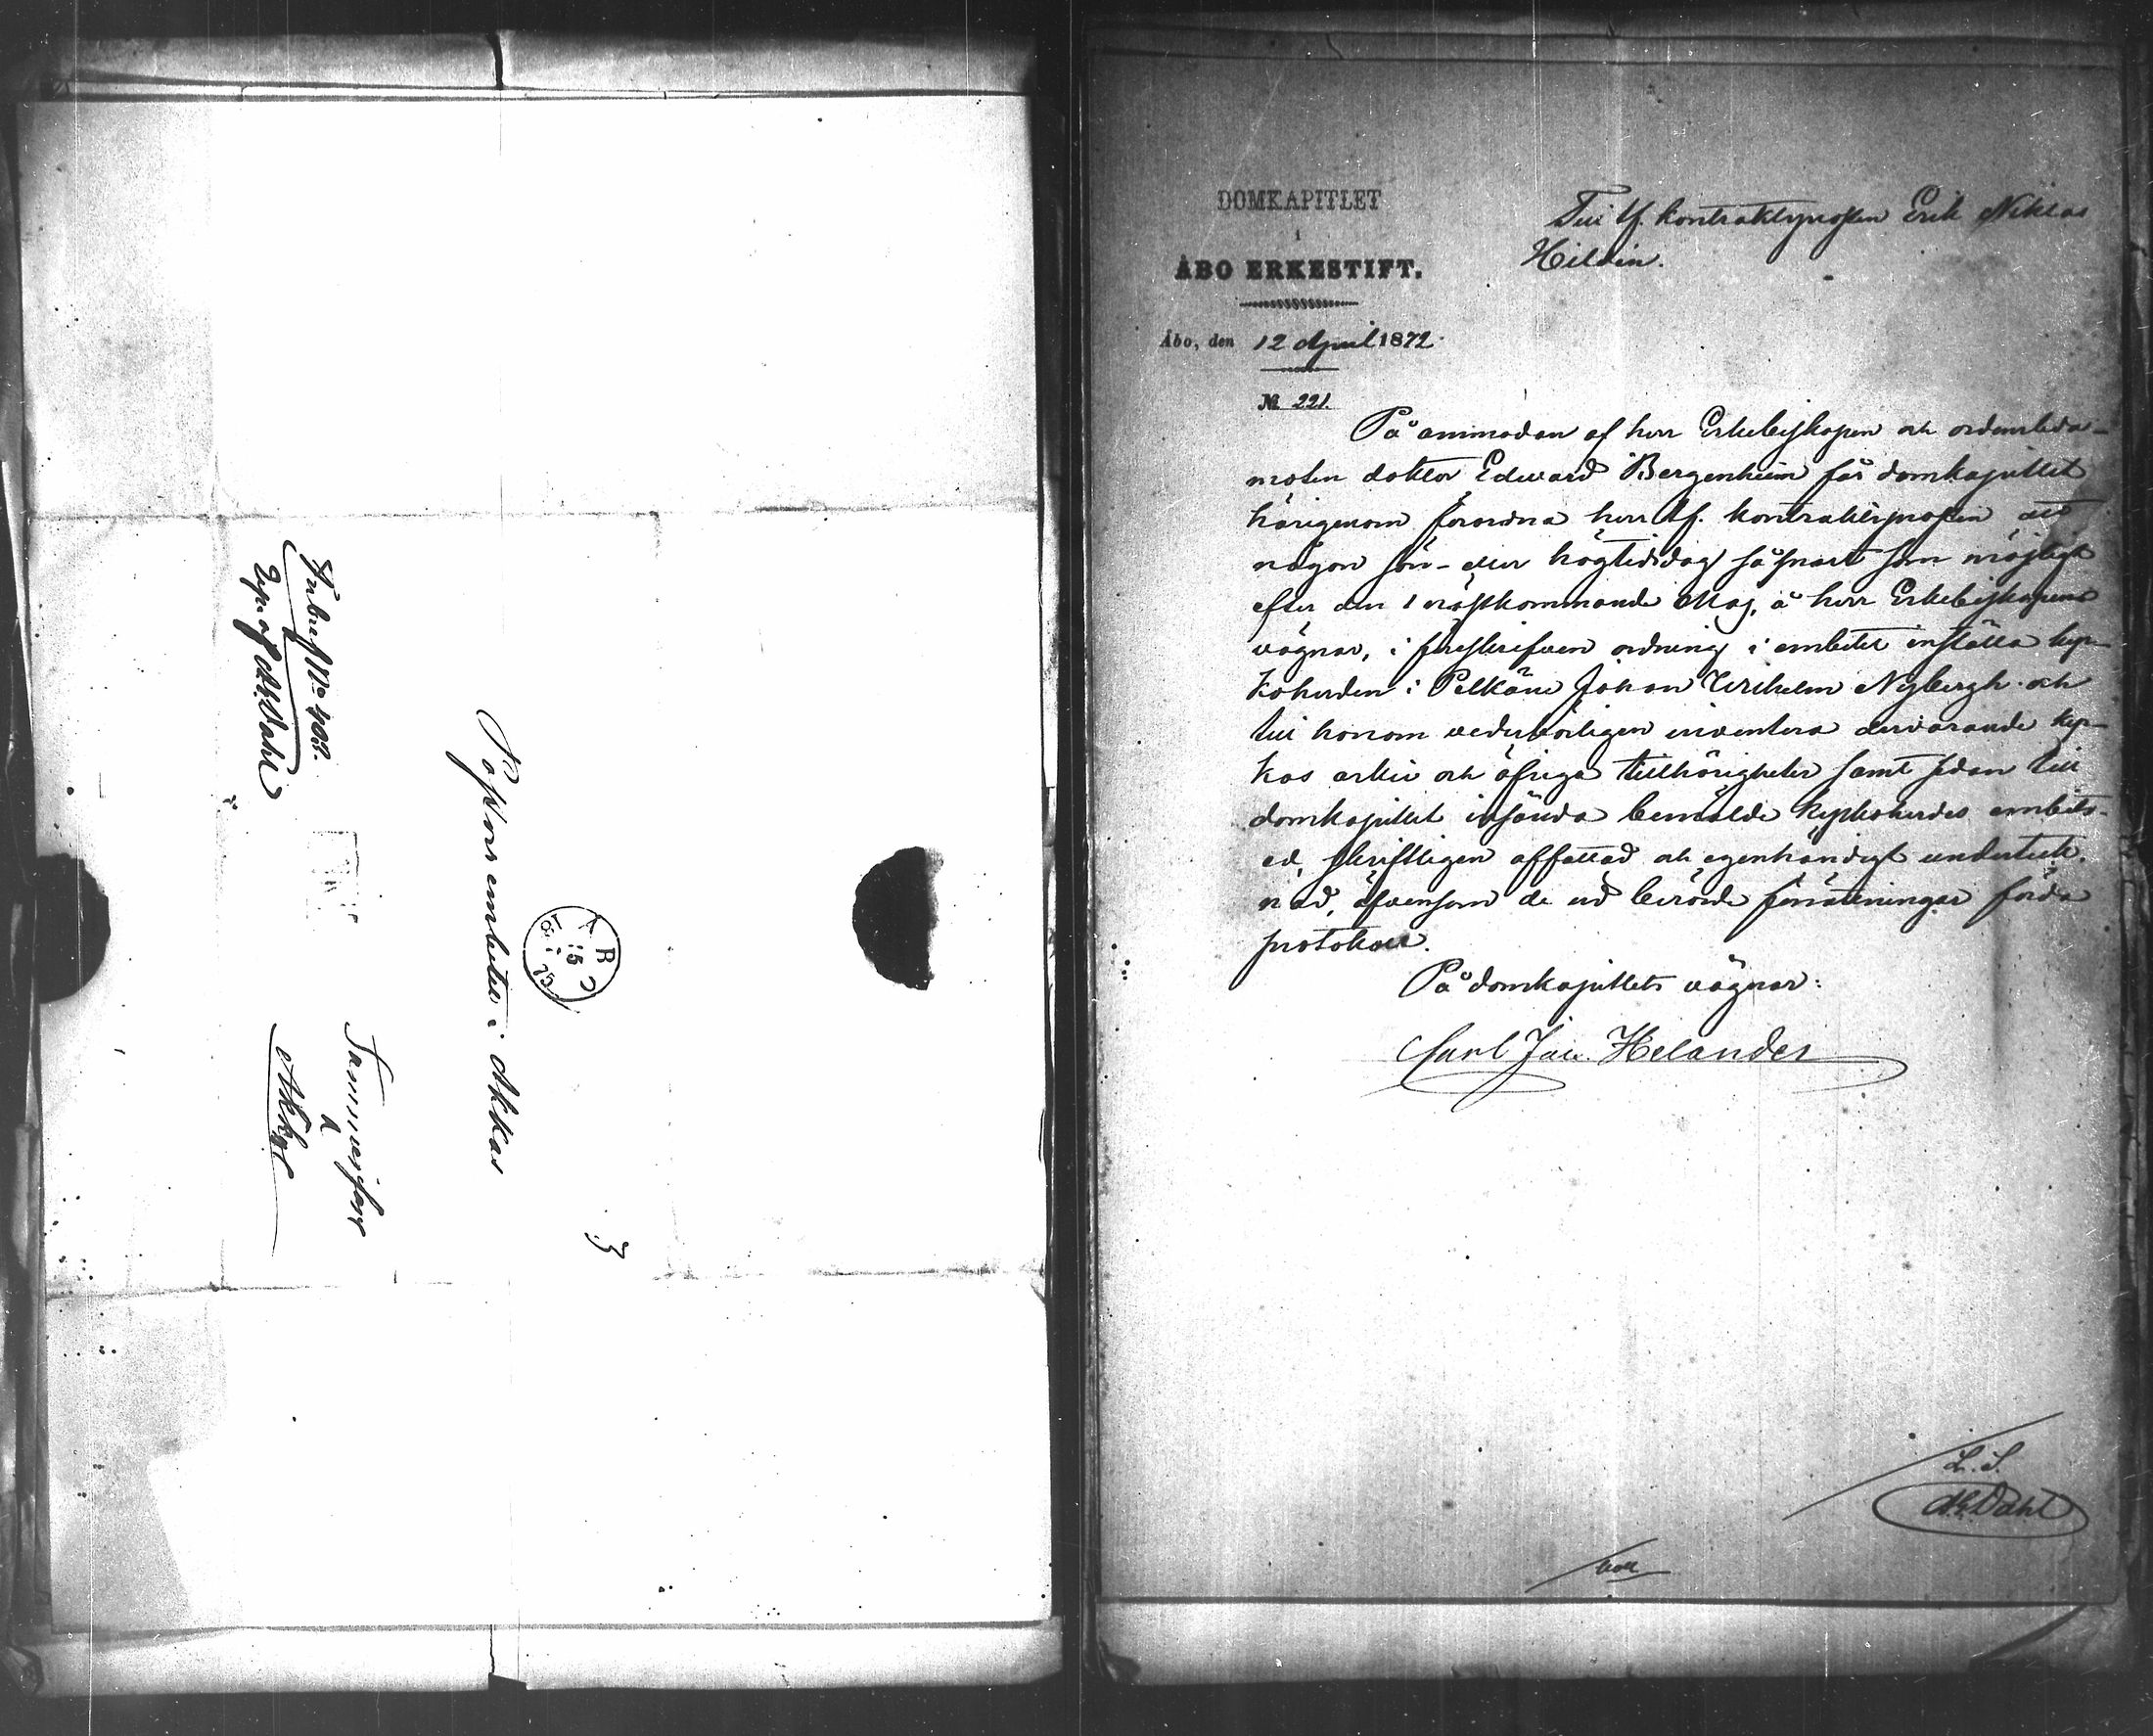 Inbref No 408.
Upr. af AG Dahl
Pastorsembetet i Akkas
Tammerfors
&
Akkas
ÅBO
15
3
DOMKAPITLET
i
ÅBO ERKESTIFT.
Åbo, den 12 April 1872.
№ 221.
Till tf. kontraktsprosten Erik Niklas
Hildén.
På anmodan af herr Erkebiskopen och ordensleda-
moten doktor Edward Bergenheim får domkapitlet
härigenom förordna herr tf. kontraktsprosten att
någon sön- eller högtidsdag så snart som möjligt
efter den 1 nästkommande Maj, å herr Erkebiskopens
vägnar, i föreskrifven ordning i embetet inställa kyr-
koherden i Pelkäne Johan Wilhelm Nybergh och
till honom vederbörligen inventera dervarande kyr-
kas arkiv och öfriga tillhörigheter samt sedan till
domkapitlet insända bemälde kyrkoherdes embets-
ed, skriftligen affattad och egenhändigt underteck-
nad, äfvensom de vid berörde förrättningar förda
protokoll.
På domkapitlets vägnar:
Carl Jac. Helander
L. S.
AG Dahl